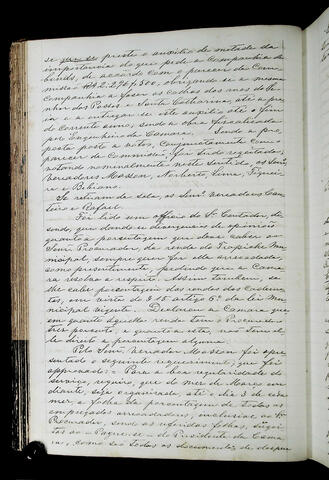 se preste o auxilio de metade da
importancia do que pede a Companhia de
bonds, de accordo com o parecer da Com
missão 2:296$500, obrigando se a mesma
Companhia a fazer os calhas das ruas do Se
nhor dos Passos e Santa Catharina, até a pra
ia e a entregar se este auxilio até o fim
do corrente anno, sendo a obra fiscalisada
por Engenheiro da Camara. Sendo a pro
posta posta a votos, conjunctamente com o
parecer da Commissão, foi sendo regeitada,
votando nominalmente neste sentido, os Senrs
Vereadores Masson, Norberto, Lima, Figuei
ra e Bibiano.
Se retiram da sala, os Senrs Vereadores Can
teiro e Rafael.
Foi lido um officio do Sr Contador, di
sendo, que dando-se divergencia de opiniões
quanto a porsentagem que deve caber ao
Senr Procurador, da renda do Trapiche Mu
nicipal, sempre que for ella arrecadada,
como presentemente, pedindo que a Cama
ra resolva a respeito. Assim tambem, se
lhe cabe porsentagem das rendas dos Contractos,
em virtude do § 15 artigo 6º da lei Mu
nicipal vigente. Declarou a Camara que
com quanto áquella renda tem o Procurador
haver porcento, e quanto a esta, não tem el
le direito a porsentagem alguma.
Pelo Senr Vereador Masson, foi apre
sentado o seguinte requerimento, que foi
approvado: = Para a boa regularidade do
serviço, requeiro, que do mez de Março em
diante, seja organisada, até o dia 3 de cada
mez, a folha da porsentagem de todos os
empregados arrecadadores, inclusive ao Sr
Procurador, sendo as referidas folhas, sugei
tas ao = Pague-se = do Presidente da Cama
ra, como são todos os documentos de despeza